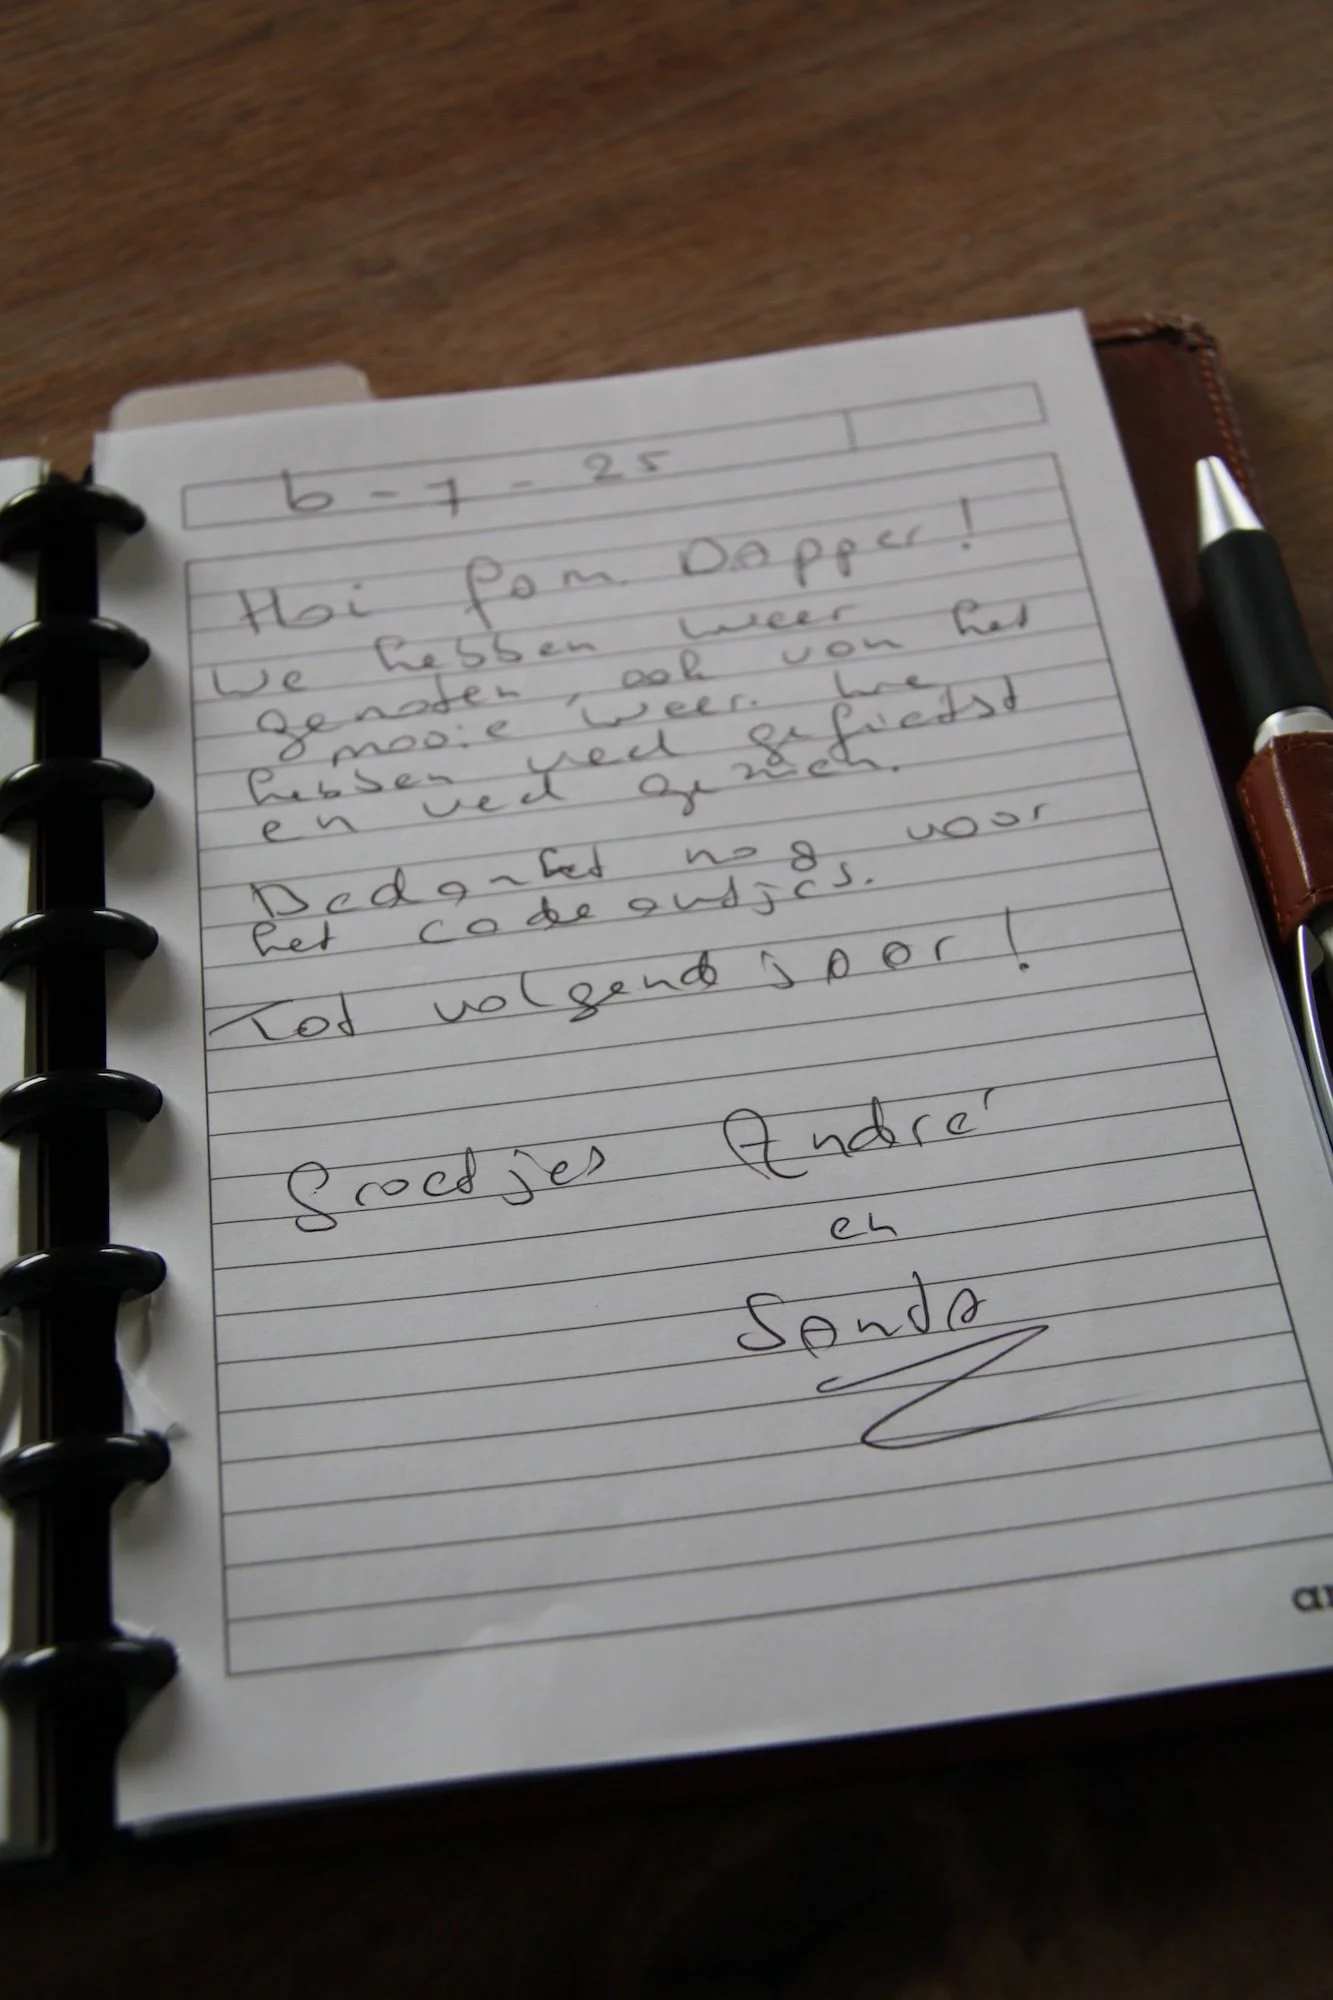 6 - 7 - 25
Hoi fam. Dapper!
We hebben weer
genoten, ook van het
mooie weer. We
hebben veel gefietst
en veel gezien.
Bedankt nog voor
het cadeautjes.
Tot volgend jaar!
Groetjes André
en
Sanda